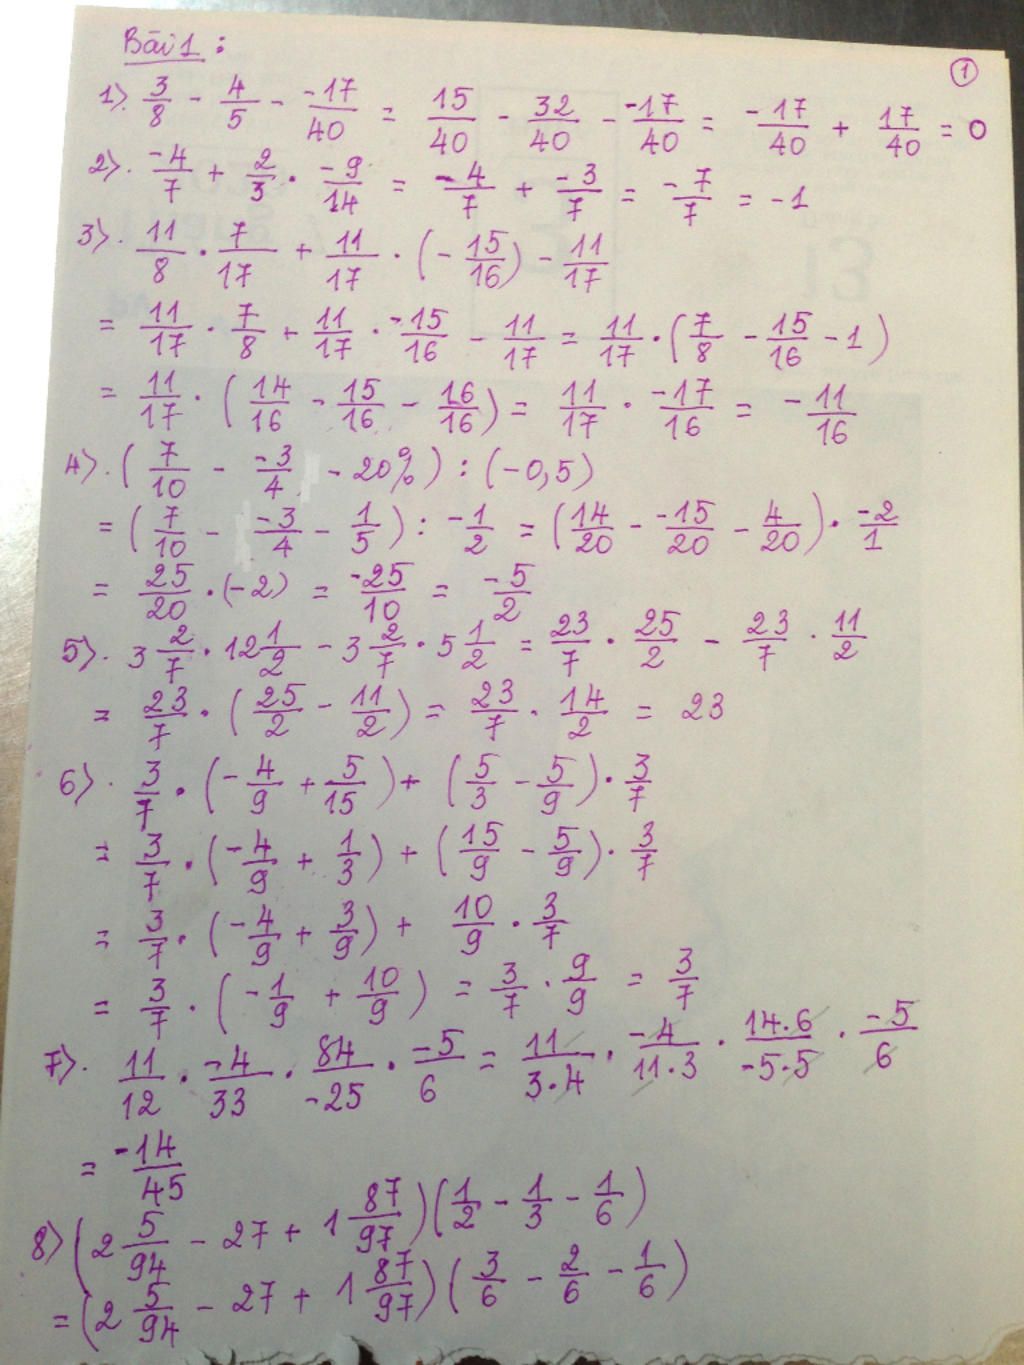 Bài 1 :
①
1). 3/8 - 4/5 - -17/40 = 15/40 - 32/40 - -17/40 = -17/40 + 17/40 = 0
2). -4/7 + 2/3 . -9/14 = -4/7 + -3/7 = -7/7 = -1
3). 11/8 . 7/17 + 11/17 . (-15/16) - 11/17
= 11/17 . 7/8 + 11/17 . -15/16 - 11/17 = 11/17 . (7/8 - 15/16 - 1)
= 11/17 . (14/16 - 15/16 - 16/16) = 11/17 . -17/16 = -11/16
4). (7/10 - -3/4 - 20%) : (-0,5)
= (7/10 - -3/4 - 1/5) : -1/2 = (14/20 - -15/20 - 4/20) . -2/1
= 25/20 . (-2) = -25/10 = -5/2
5). 3 2/7 . 12 1/2 - 3 2/7 . 5 1/2 = 23/7 . 25/2 - 23/7 . 11/2
= 23/7 . (25/2 - 11/2) = 23/7 . 14/2 = 23
6). 3/7 . (-4/9 + 5/15) + (5/3 - 5/9) . 3/7
= 3/7 . (-4/9 + 1/3) + (15/9 - 5/9) . 3/7
= 3/7 . (-4/9 + 3/9) + 10/9 . 3/7
= 3/7 . (-1/9 + 10/9) = 3/7 . 9/9 = 3/7
7). 11/12 . -4/33 . 84/-25 . -5/6 = 11/3.4 . -4/11.3 . 14.6/-5.5 . -5/6
= -14/45
8) (2 5/94 - 27 + 1 87/97)(1/2 - 1/3 - 1/6)
= (2 5/94 - 27 + 1 87/97)(3/6 - 2/6 - 1/6)